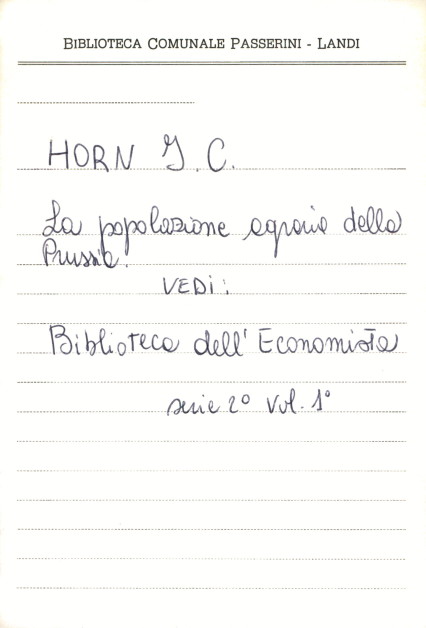 BIBLIOTECA COMUNALE PASSERINI - LANDI
HORN J. C.
La popolazione agraria della
Prussia.
VEDI:
Biblioteca dell'Economista
serie 2° Vol. 1°